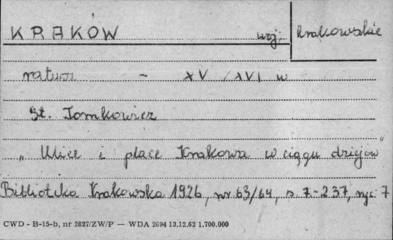 KRAKÓW woj. krakowskie
ratusz - XV/XVI w
St. Tomkowicz
„Ulice i place Krakowa w ciągu dziejów"
Biblioteka Krakowska 1926, nr 63/64, s. 7-237, ryc. 7
CWD - B-15-b, nr 2827/ZW/P — WDA 2694 13.12.62 1.700.000